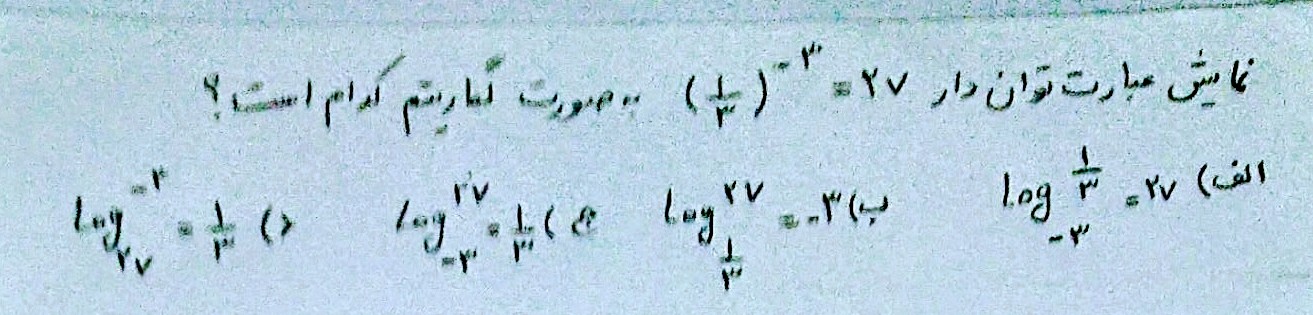 نمایش عبارت توان دار (۱/۳)^-۳ = ۲۷ به صورت لگاریتم کدام است؟
الف) log_-۳ ^۱/۳ = ۲۷ ب) log_۱/۳ ^۲۷ = -۳ ج) log_-۳ ^۲۷ = ۱/۳ د) log_۲۷ ^-۳ = ۱/۳